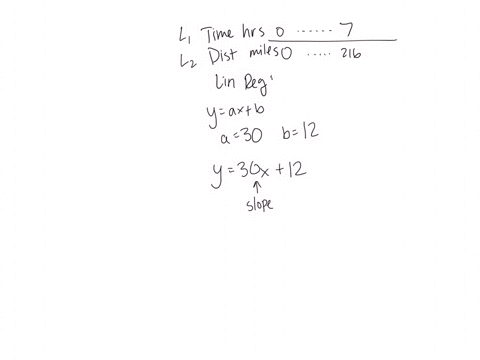 L₁ Time hrs 0 ...... 7
L₂ Dist miles 0 ..... 216
Lin Reg'
y=ax+b
a=30 b=12
y=30x+12
↑
slope